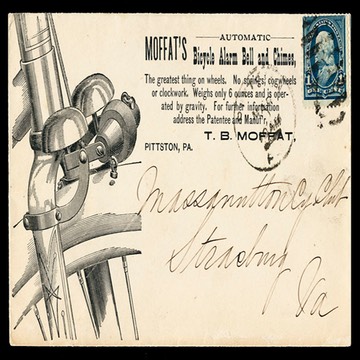 AUTOMATIC
MOFFAT'S Bicycle Alarm Bell and Chimes,
The greatest thing on wheels. No springs, cogwheels
or clockwork. Weighs only 6 ounces and is oper-
ated by gravity. For further information
address the Patentee and Manuf'r,
T. B. MOFFAT,
PITTSTON, PA.
1 1
ONE CENT
Massanutton Cy Club
Strasburg
Va